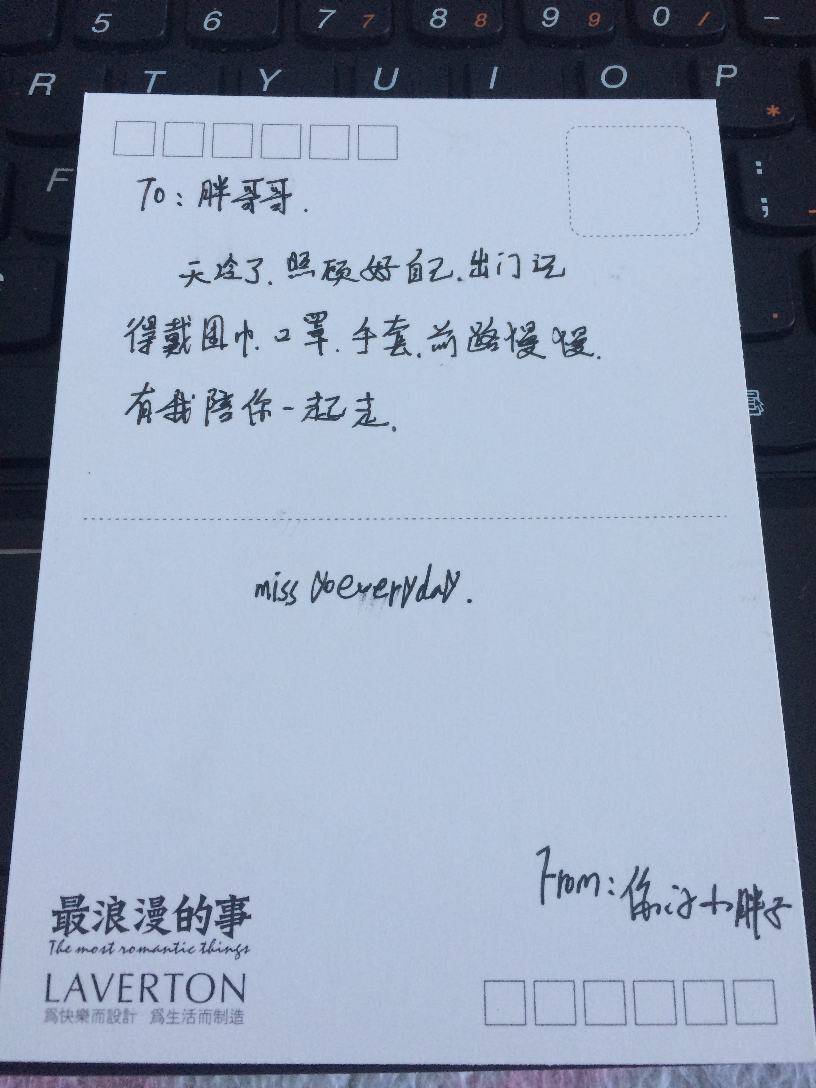 5 6 7 7 8 8 9 9 0 / -
R T Y U I O P *
F : ;
To：胖哥哥.
天冷了.照顾好自己.出门记
得戴围巾.口罩.手套.前路慢慢.
有我陪你一起走.
miss yoeveryday.
From：你的小胖子
最浪漫的事
The most romantic things
LAVERTON
爲快樂而設計 爲生活而制造